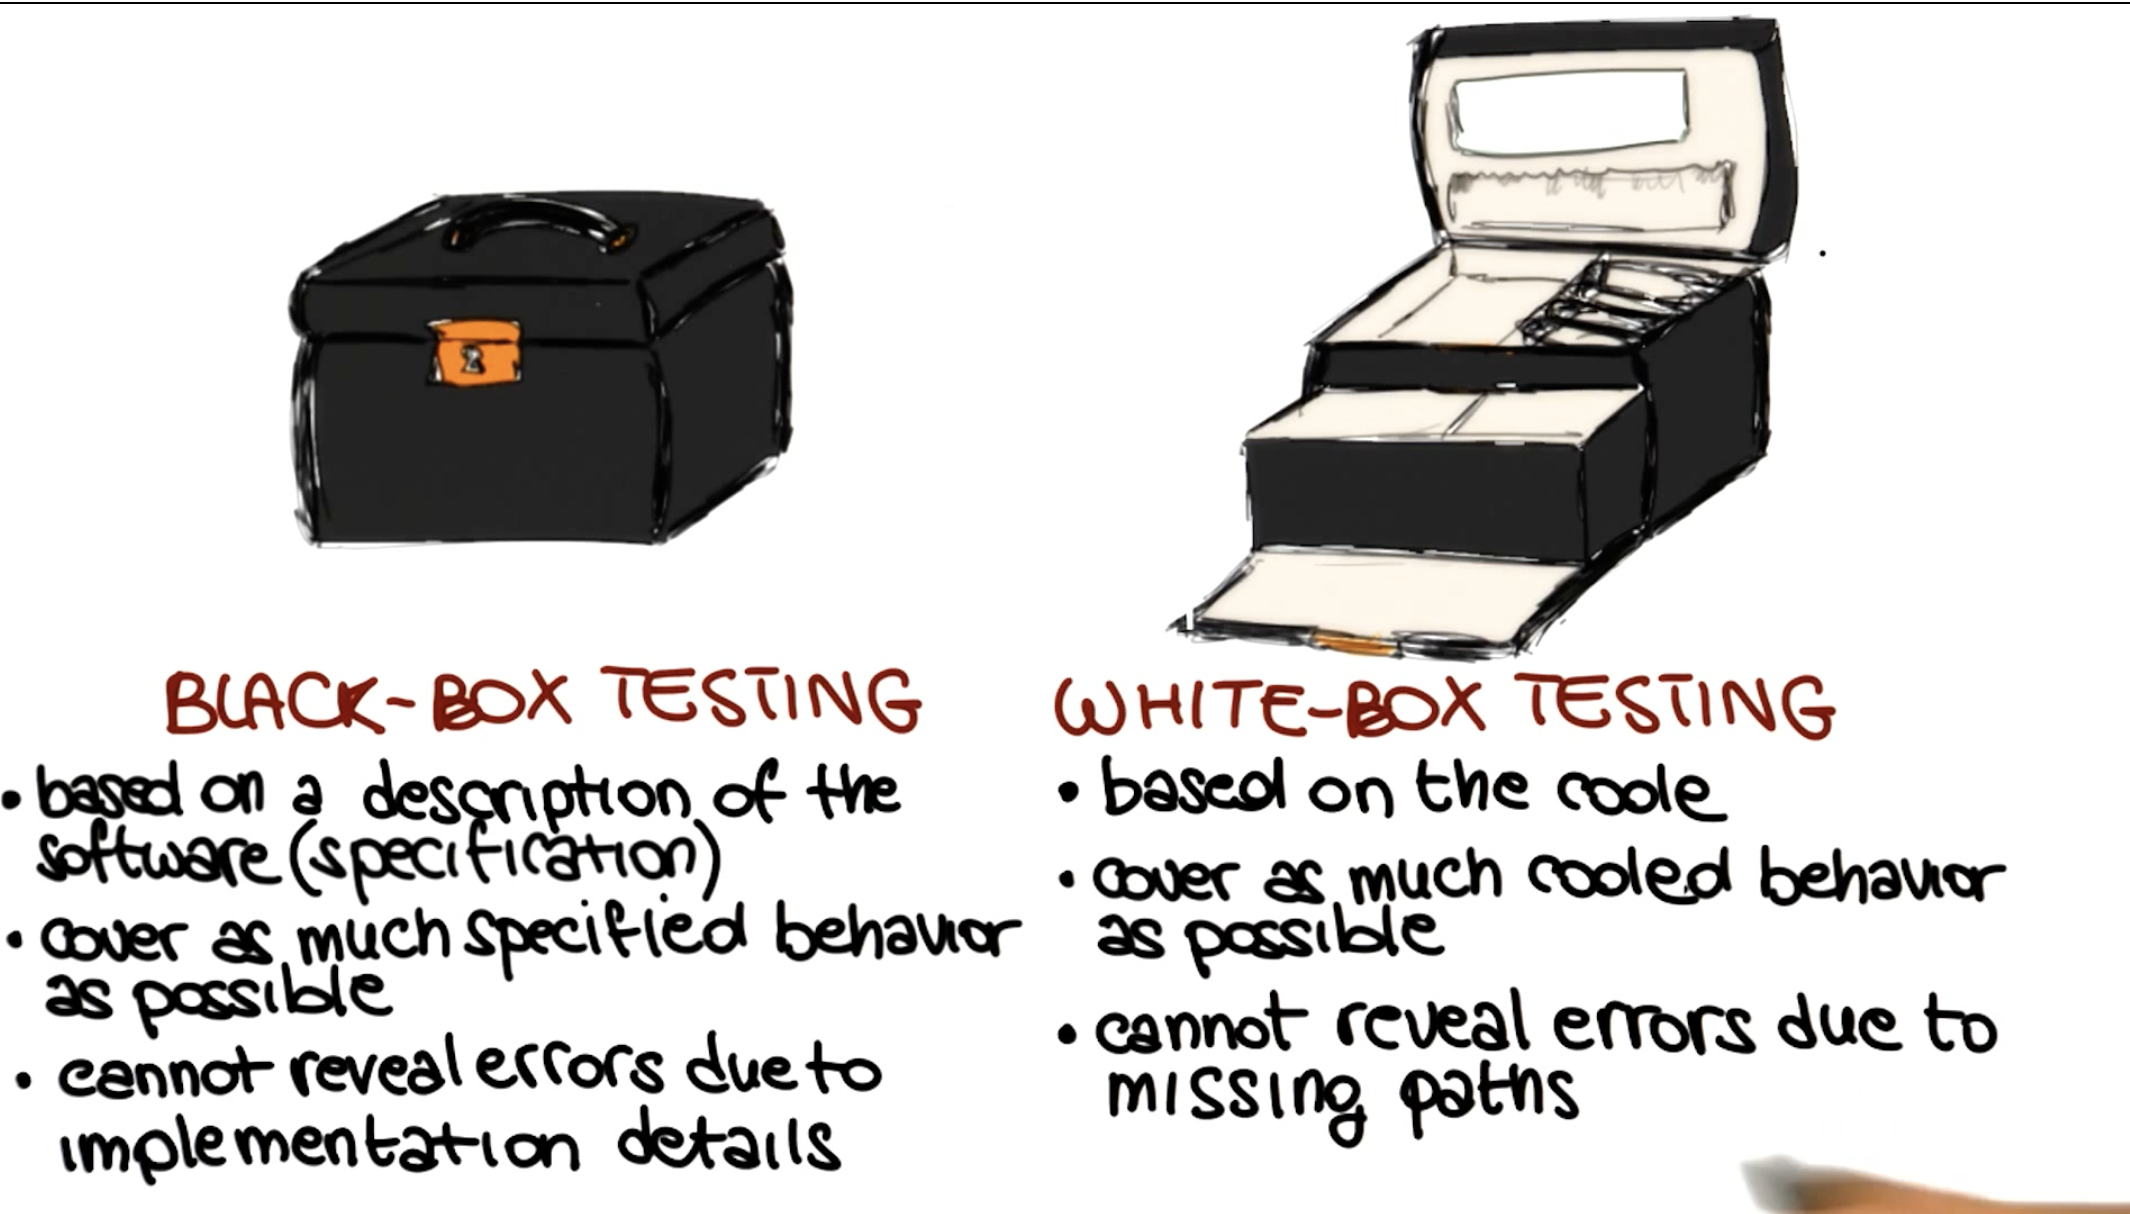 BLACK-BOX TESTING
• based on a description of the
software (specification)
• cover as much specified behavior
as possible
• cannot reveal errors due to
implementation details
WHITE-BOX TESTING
• based on the code
• cover as much coded behavior
as possible
• cannot reveal errors due to
missing paths